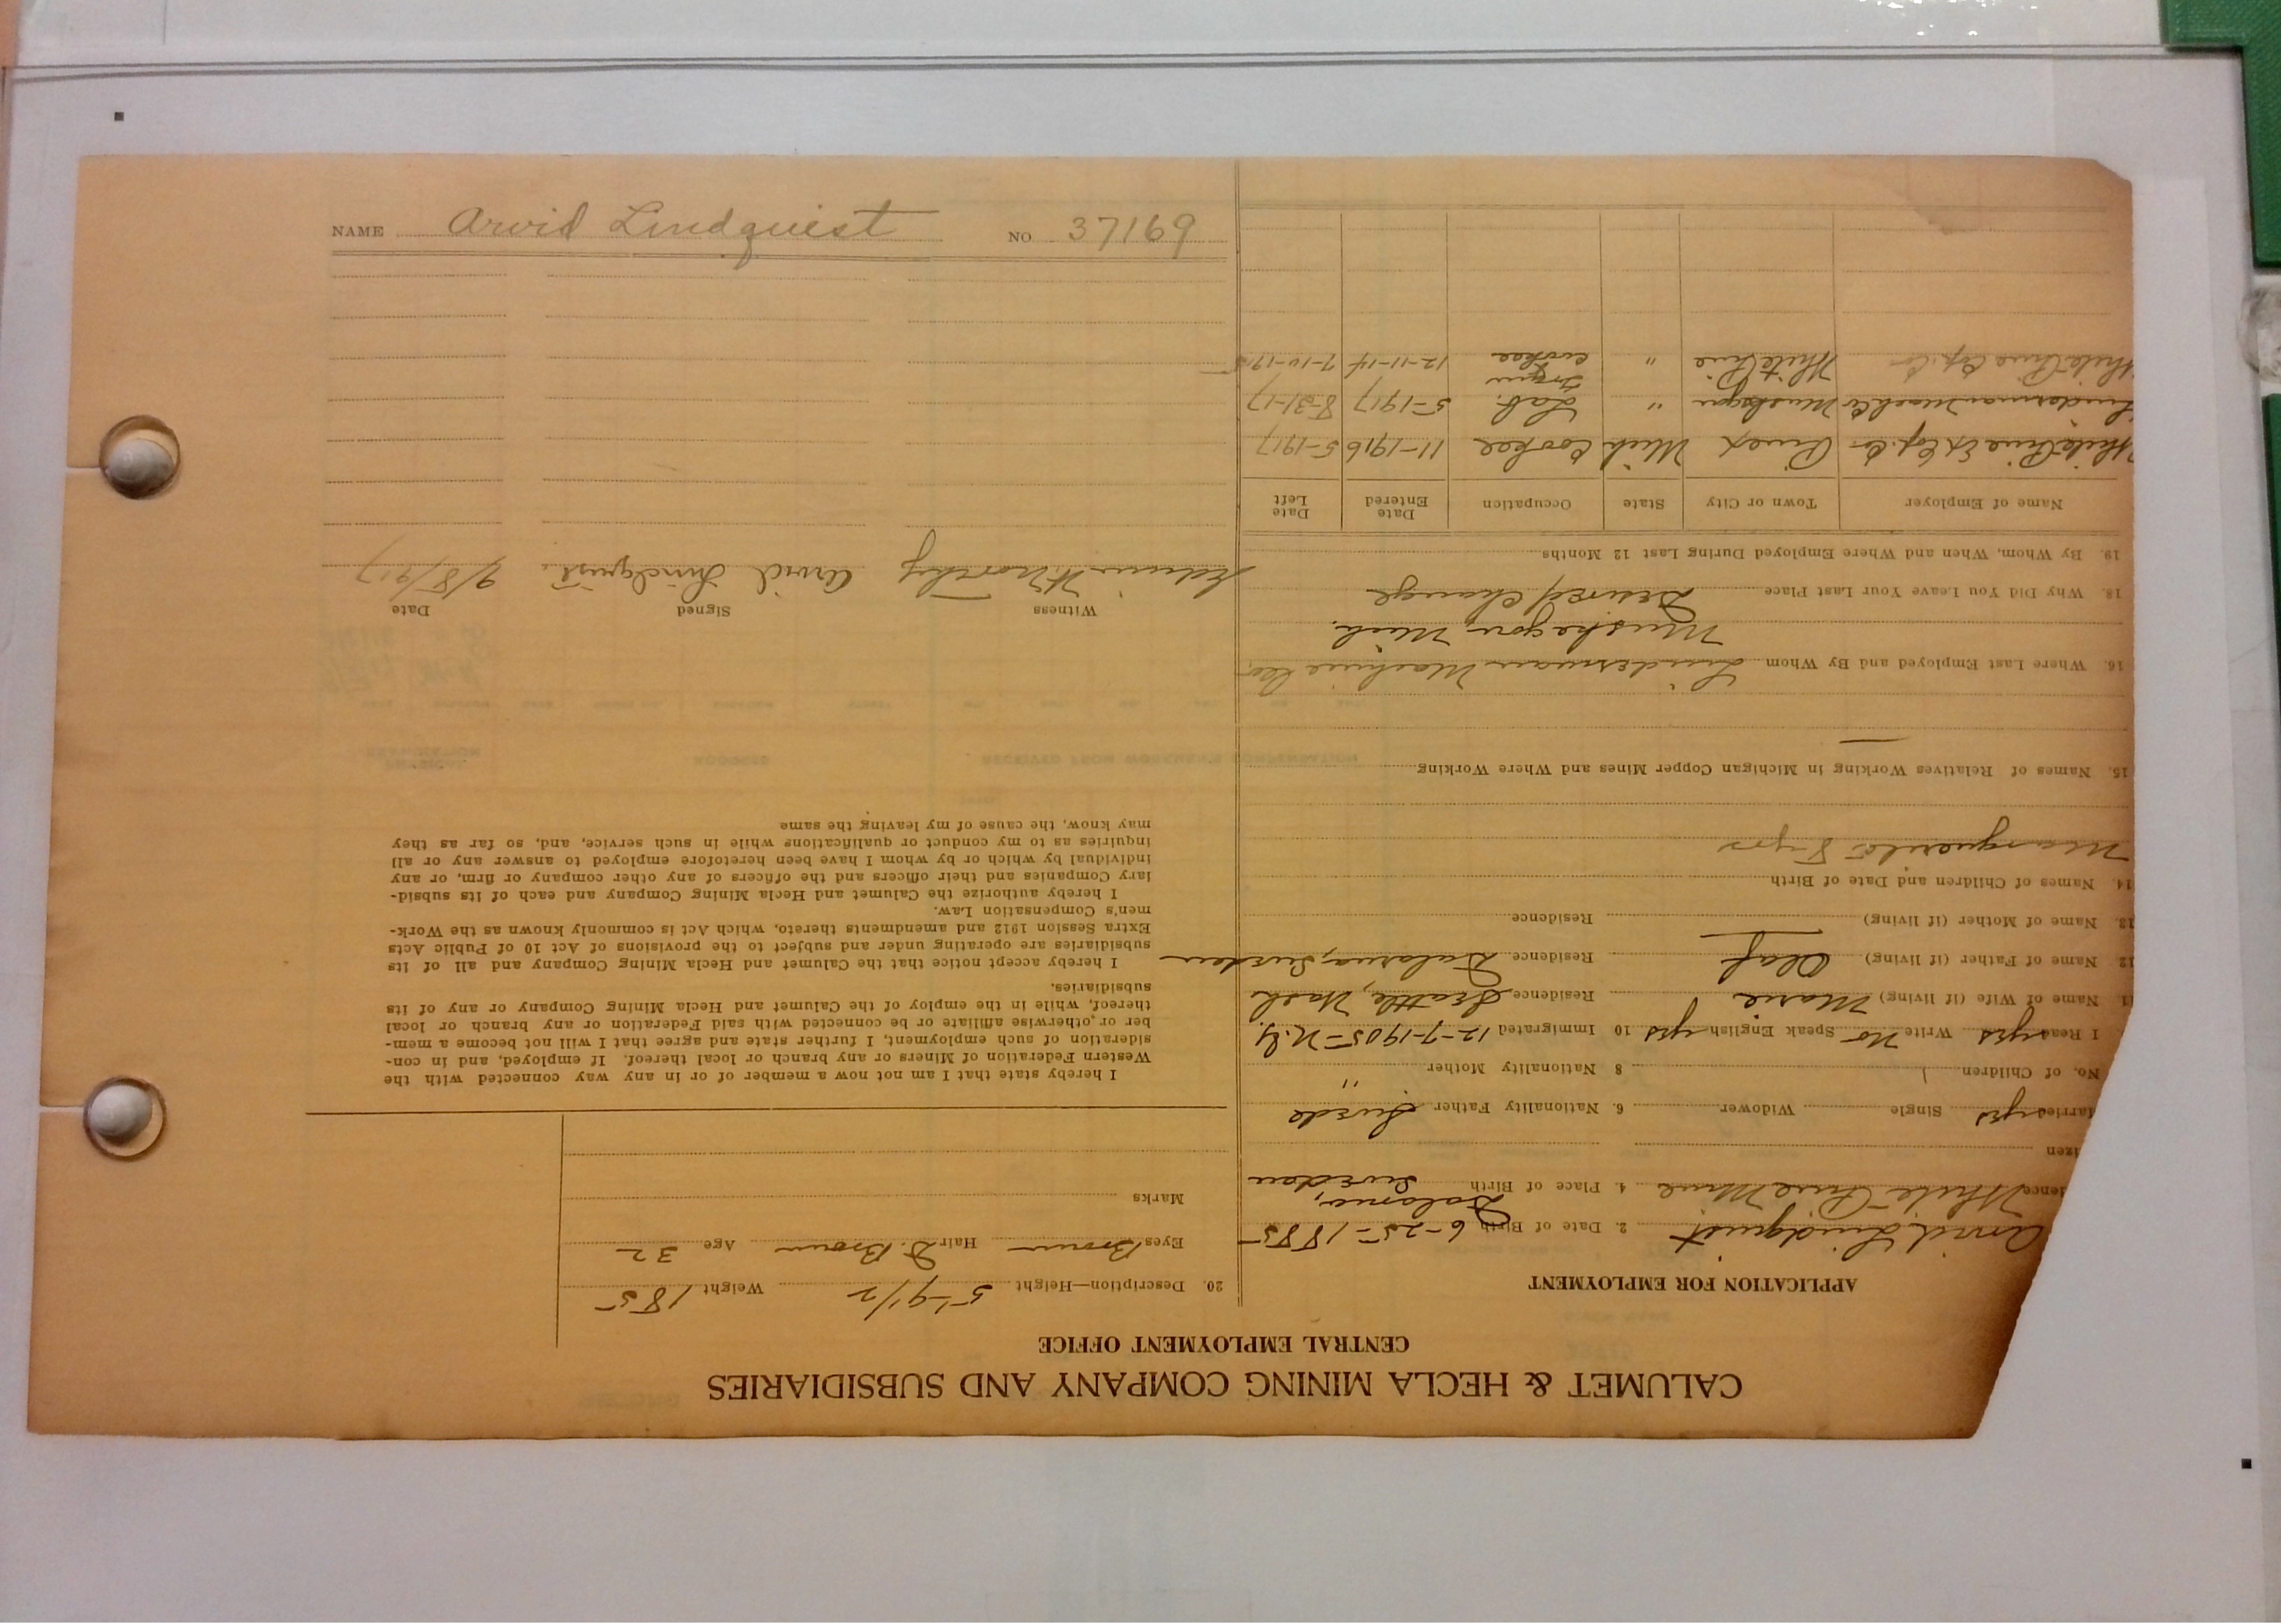 CALUMET & HECLA MINING COMPANY AND SUBSIDIARIES
CENTRAL EMPLOYMENT OFFICE
APPLICATION FOR EMPLOYMENT
Arvid Lindquist 2. Date of Birth 6-25-1885
dence White Pine Mine 4. Place of Birth Dalarna, Sweden
izen
arried yes Single Widower 6. Nationality Father Swede
No. of Children 1 8 Nationality Mother "
I Read yes Write No Speak English yes 10 Immigrated 12-7-1905-N.Y.
11. Name of Wife (if living) Marie Residence Seattle, Wash
12 Name of Father (if living) Olaf Residence Dalarna, Sweden
13. Name of Mother (if living) — Residence
14. Names of Children and Date of Birth
Marguerite 8 yrs
15. Names of Relatives Working in Michigan Copper Mines and Where Working
—
16. Where Last Employed and By Whom Linderman Machine Co.
Muskegon, Mich.
18. Why Did You Leave Your Last Place Desired change
19. By Whom, When and Where Employed During Last 12 Months
Name of Employer Town or City State Occupation Date Entered Date Left
White Pine Ex Cop. Co Pinex Mich Cookee 11-1916 5-1917
Linderman Mach Co Muskegon " Lab. 5-1917 8-31-17
White Pine Cop. Co White Pine " cookee 12-11-14 7-10-1915
20. Description—Height 5'-9 1/2 Weight 185
Eyes Brown Hair D. Brown Age 32
Marks
I hereby state that I am not now a member of or in any way connected with the
Western Federation of Miners or any branch or local thereof. If employed, and in con-
sideration of such employment, I further state and agree that I will not become a mem-
ber or otherwise affiliate or be connected with said Federation or any branch or local
thereof, while in the employ of the Calumet and Hecla Mining Company or any of its
subsidiaries.
I hereby accept notice that the Calumet and Hecla Mining Company and all of its
subsidiaries are operating under and subject to the provisions of Act 10 of Public Acts
Extra Session 1912 and amendments thereto, which Act is commonly known as the Work-
men's Compensation Law.
I hereby authorize the Calumet and Hecla Mining Company and each of its subsid-
iary Companies and their officers and the officers of any other company or firm, or any
individual by which or by whom I have been heretofore employed to answer any or all
inquiries as to my conduct or qualifications while in such service, and, so far as they
may know, the cause of my leaving the same
Witness Signed Date
Arvid Lindquist. 9/8/1917
NAME Arvid Lindquist NO 37169